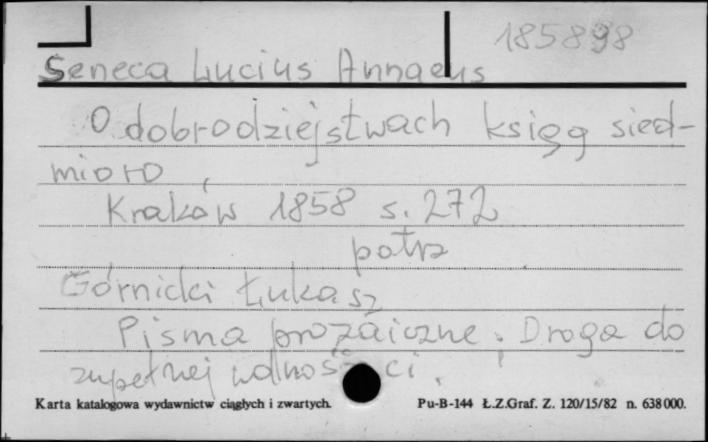 185898
Seneca Lucius Annaeus
O dobrodziejstwach ksiąg sied-
mioro,
Kraków 1858 s. 272
patrz
Górnicki Łukasz
Pisma prozaiczne. Droga do
zupełnej wolności.
Karta katalogowa wydawnictw ciągłych i zwartych. Pu-B-144 Ł.Z.Graf. Z. 120/15/82 n. 638000.